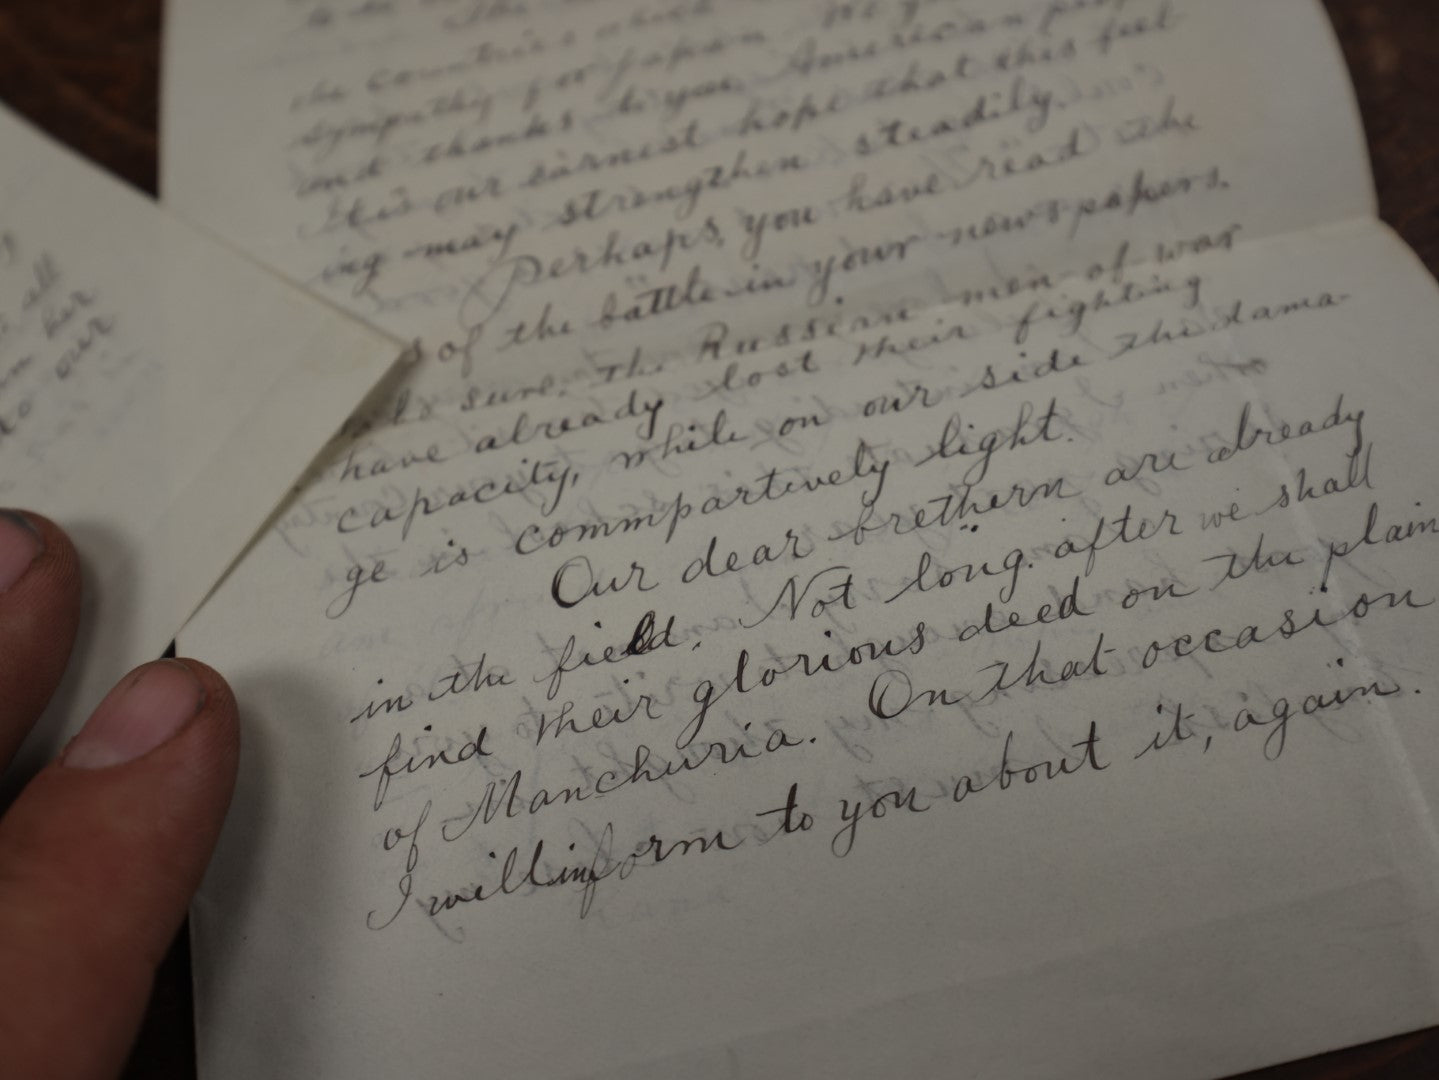 the countries which
sympathy for Japan. We
and thanks to you American
It is our earnest hope that this feel
ing may strengthen steadily.
Perhaps, you have read the
of the battle in your newspapers.
sure. The Russian men-of-war
have already lost their fighting
capacity, while on our side the dama-
ge is commpartively light.
Our dear brethern are already
in the field. Not long. after we shall
find their glorious deed on the plain
of Manchuria. On that occasion
I will inform to you about it, again.
all
her
our